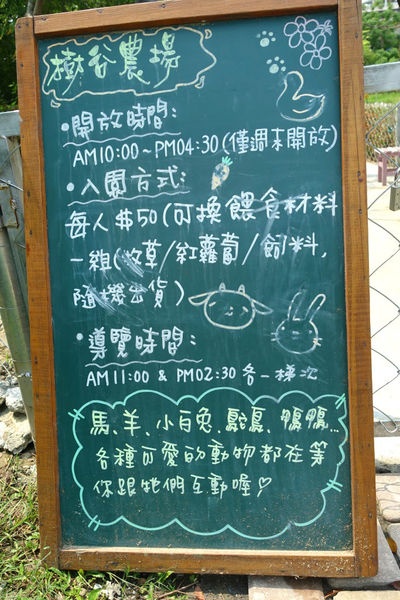 樹谷農場
•開放時間:
AM10:00~PM04:30(僅週末開放)
•入園方式:
每人$50(可換餵食材料
一組(牧草/紅蘿蔔/飼料,
隨機出貨)
•導覽時間:
AM11:00 & PM02:30各一梯次
馬、羊、小白兔、鴕鳥、鴨鴨...
各種可愛的動物都在等
你跟牠們互動喔♡